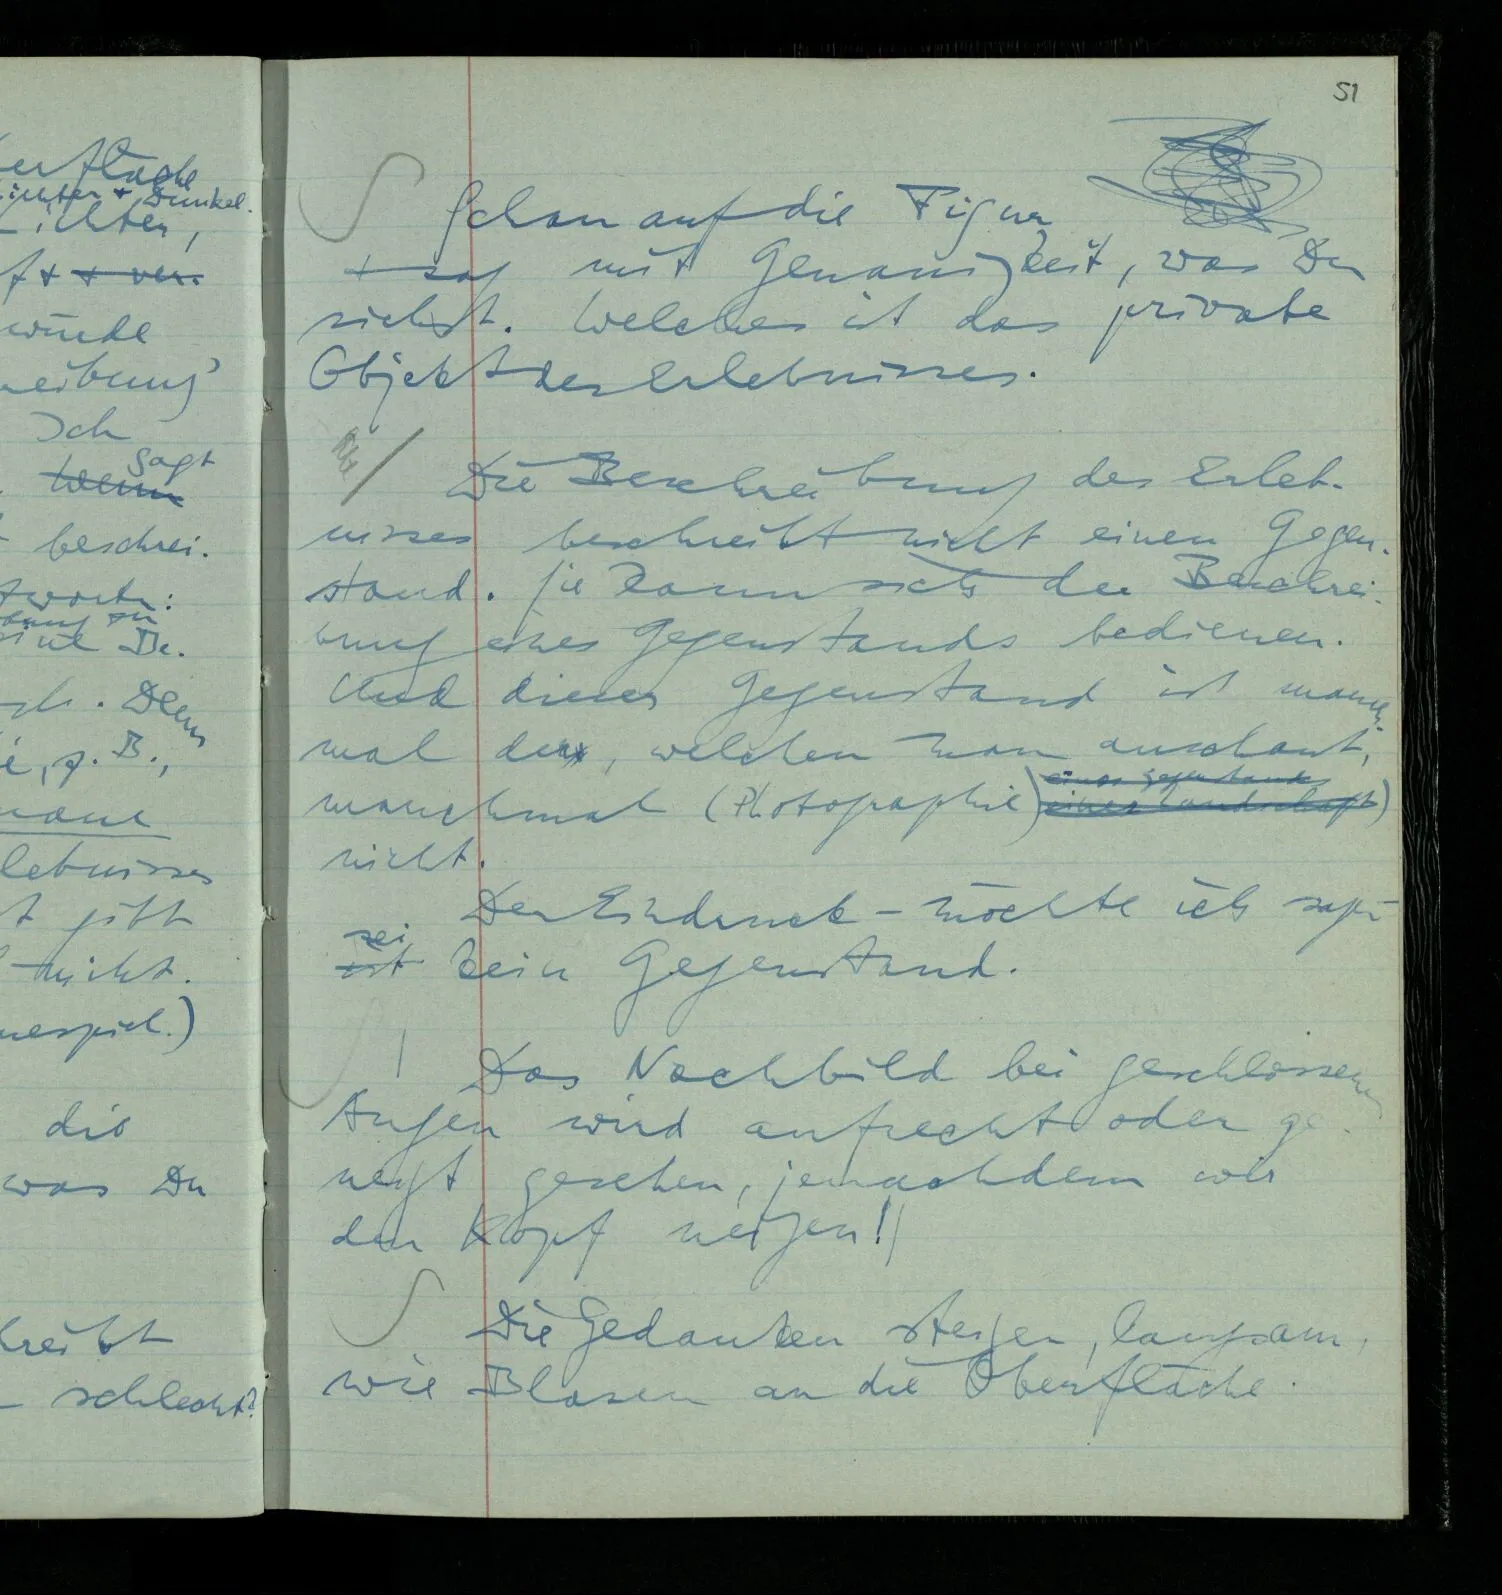 erfläche
ichter + Dunkel.
Lichter,
+ ver.
würde
reibung
Ich
sagt
Wenn
beschrei.
twortn:
bung zu
eine Be.
Denn
z. B.,
lebnisses
t gibt
nicht.
nespiel.)
die
was Du
hreibt
– schlecht?
51
Schau auf die Figur
+ sag mit Genauigkeit, was Du
siehst. Welches ist das private
Objekt des Erlebnisses.
/ Die Beschreibung des Erleb-
nisses beschreibt nicht einen Gegen-
stand. Sie kann sich der Beschrei-
bung eines Gegenstands bedienen.
Und dieser Gegenstand ist manch-
mal der, welchen man anschaut,
eines Gegenstands
manchmal (Photographie) einer Landschaft)
nicht.
Der Eindruck – möchte ich sagen
sei
ist kein Gegenstand.
| Das Nachbild bei geschlossenen
Augen wird aufrecht oder ge-
neigt gesehen, jenachdem wir
den Kopf neigen!|
Die Gedanken steigen, langsam,
wie Blasen an die Oberfläche.